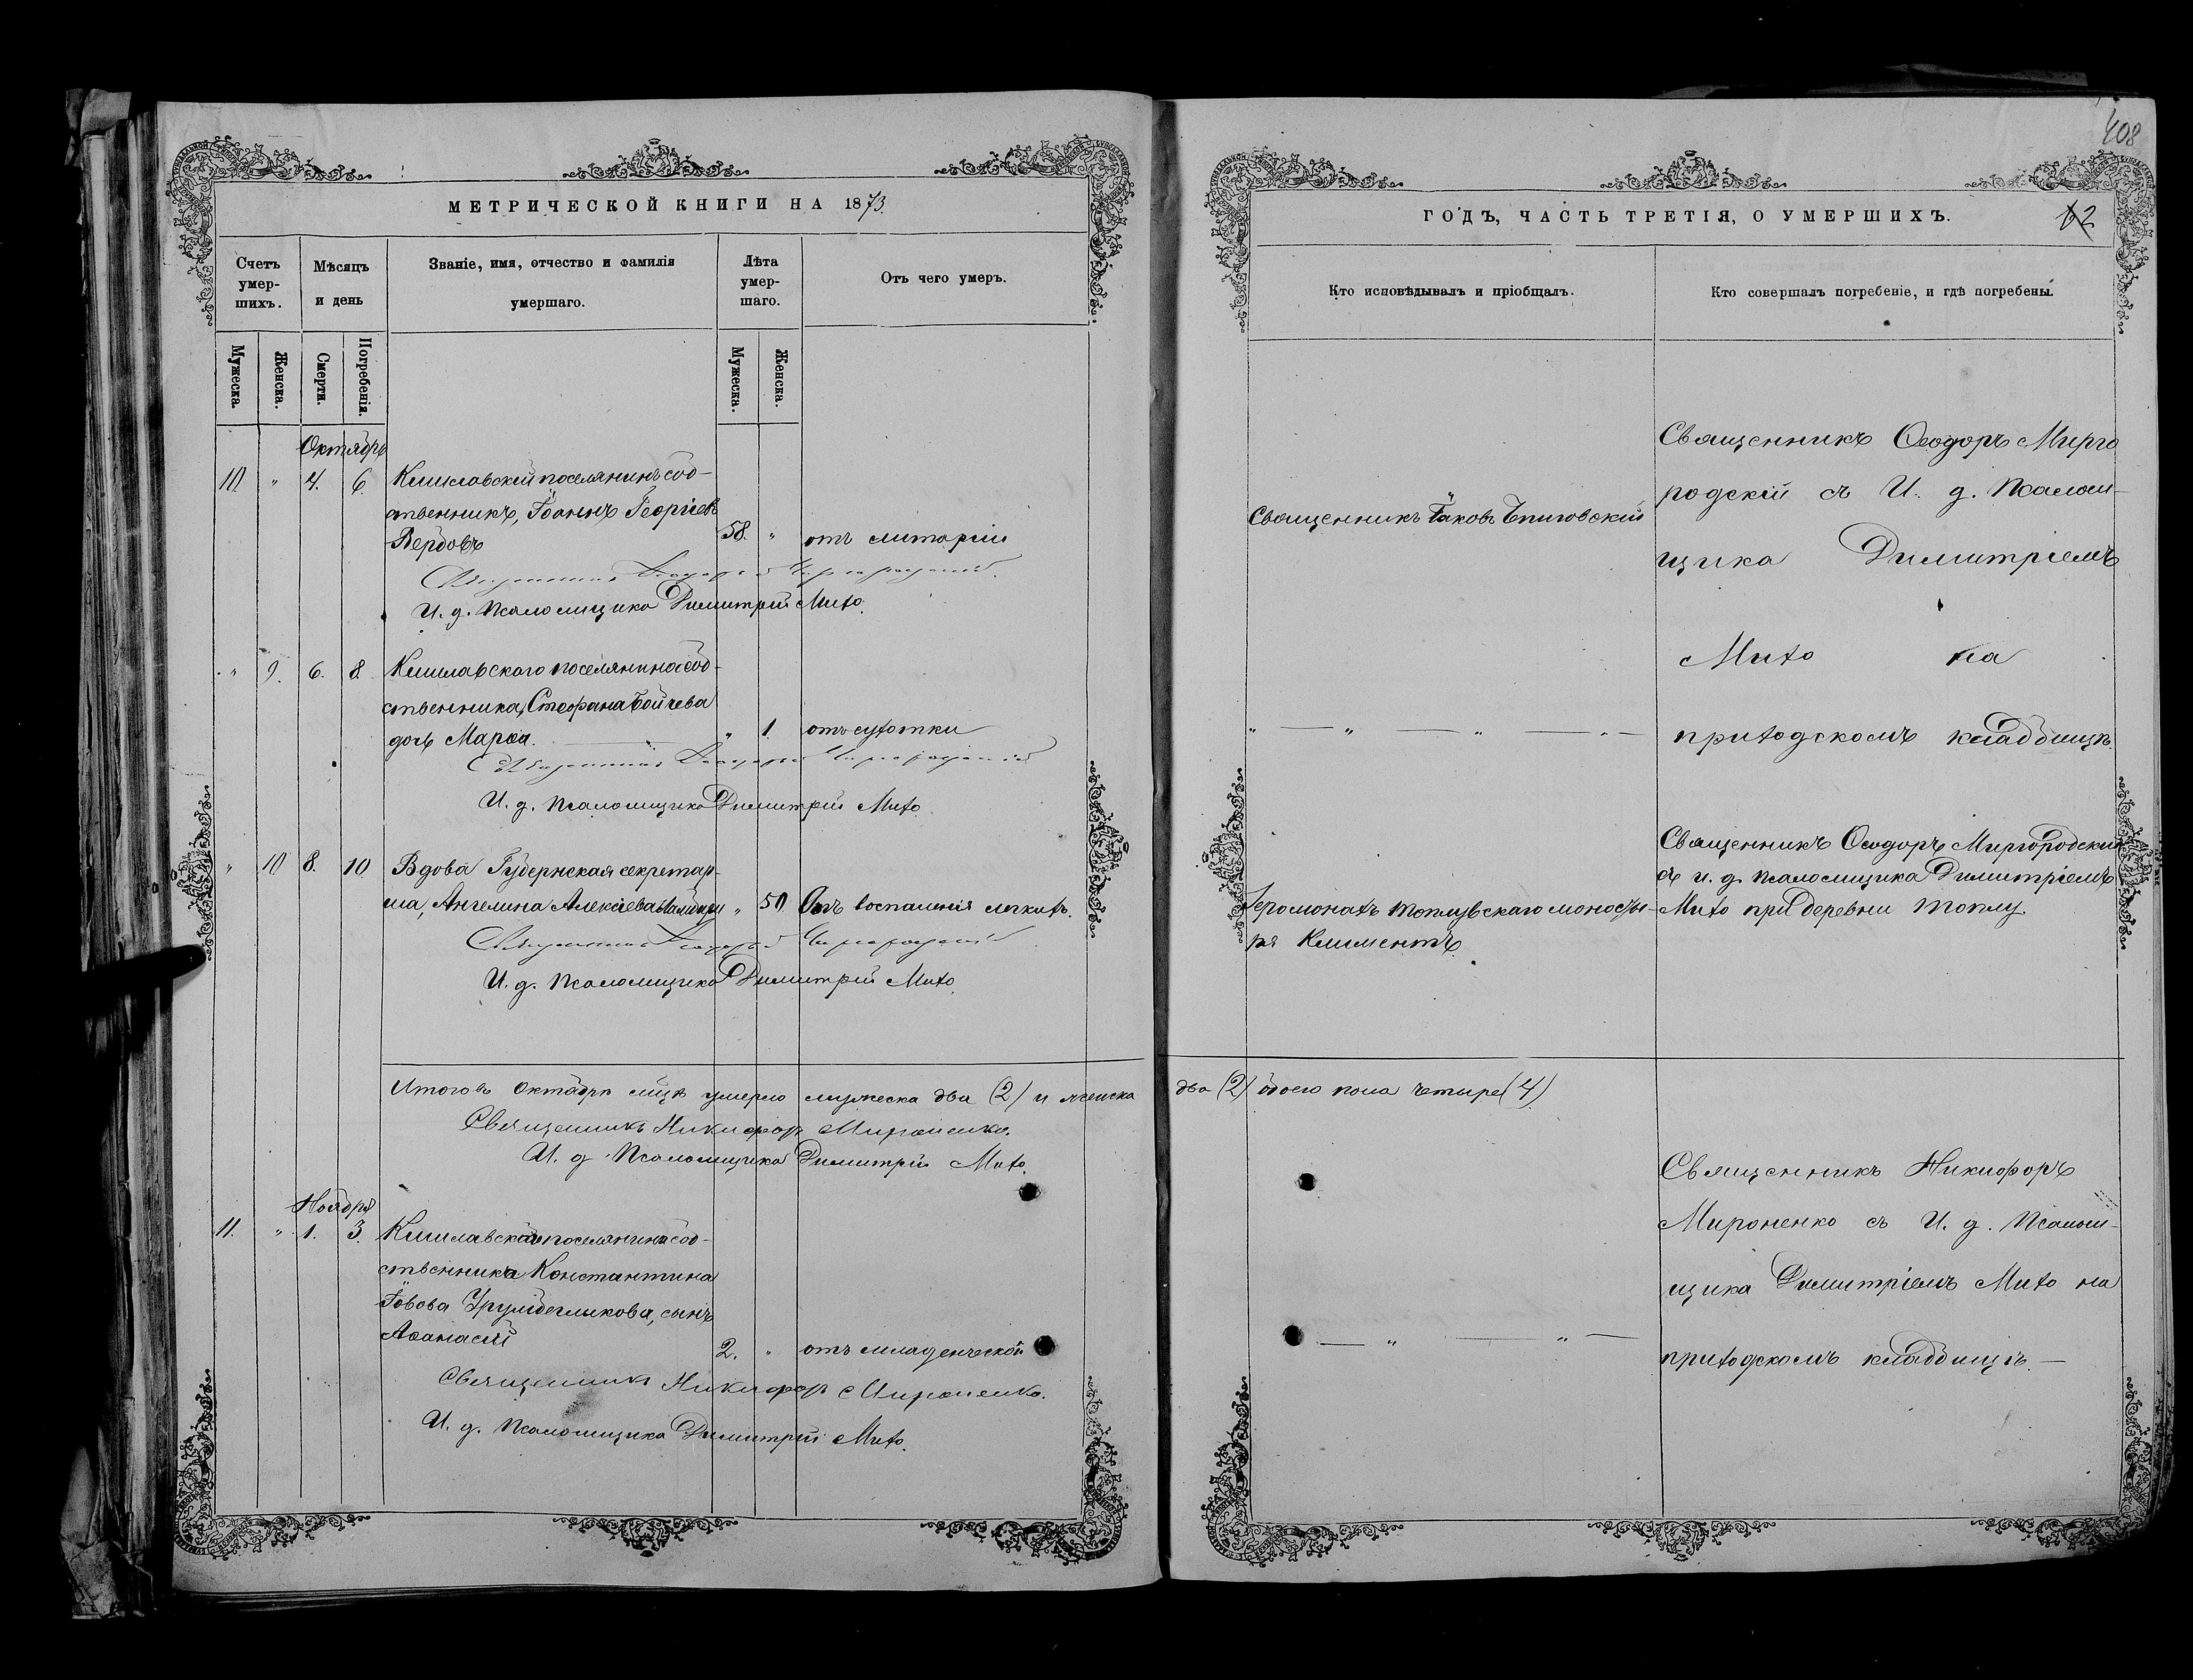 408
МЕТРИЧЕСКОЙ КНИГИ НА 1873.
Счетъ умер-шихъ.
Мѣсяцъ и день
Званіе, имя, отчество и фамилія умершаго.
Лѣта умер-шаго.
Отъ чего умеръ.
Мужеска.
Женска.
Смерти.
Погребенія.
Мужеска.
Женска.
Октябрь
10. " 4. 6. Кишлавскій поселянинъ соб-
ственникъ, Іоаннъ Георгіевъ
58. " отъ
Священникъ Ѳеодоръ Миргородскій
И. д. Псаломщика Димитрій Михо.
" 9. 6. 8. Кишлавскаго поселянина соб-
ственника, Стефана Бойчева
дочь Марѳа. " 1. отъ сухотки
Священникъ Ѳеодоръ Миргородскій
И. д. Псаломщика Димитрій Михо
" 10 8. 10 Вдова Губернская секретар-
ша, Ангелина Алексіева " 50 Отъ воспаленія легкихъ.
Священникъ Ѳеодоръ Миргородскій
И. д. Псаломщика Димитрій Михо.
Итого въ Октябрѣ мцѣ умерло мужеска два (2) и женска
Священникъ Никифоръ Мироненко.
И. д. Псаломщика Димитрій Михо.
Ноябрь
11. " 1. 3. Кишлавскаго поселянина соб-
ственника Константина
сынъ
Аѳанасій 2. " отъ младенческой
Священникъ Никифоръ Мироненко.
И. д. Псаломщика Димитрій Михо.
ГОДЪ, ЧАСТЬ ТРЕТІЯ, О УМЕРШИХЪ.
Кто исповѣдывалъ и пріобщалъ.
Кто совершалъ погребеніе, и гдѣ погребены.
Священникъ Іаковъ
" " " "
Іеромонахъ Топлувскаго монасты-
ря Климентъ.
два (2) обоего пола четыре (4)
" "
Священникъ Ѳеодоръ Мирго
родскій съ И. д. Псалом-
щика Димитріемъ
Михо на
приходскомъ кладбищѣ.
Священникъ Ѳеодоръ Миргородскій
съ и. д. псаломщика Димитріемъ
Михо при деревни Топлу.
Священникъ Никифоръ
Мироненко съ И. д. Псалом-
щика Димитріемъ Михо на
приходскомъ кладбищѣ.